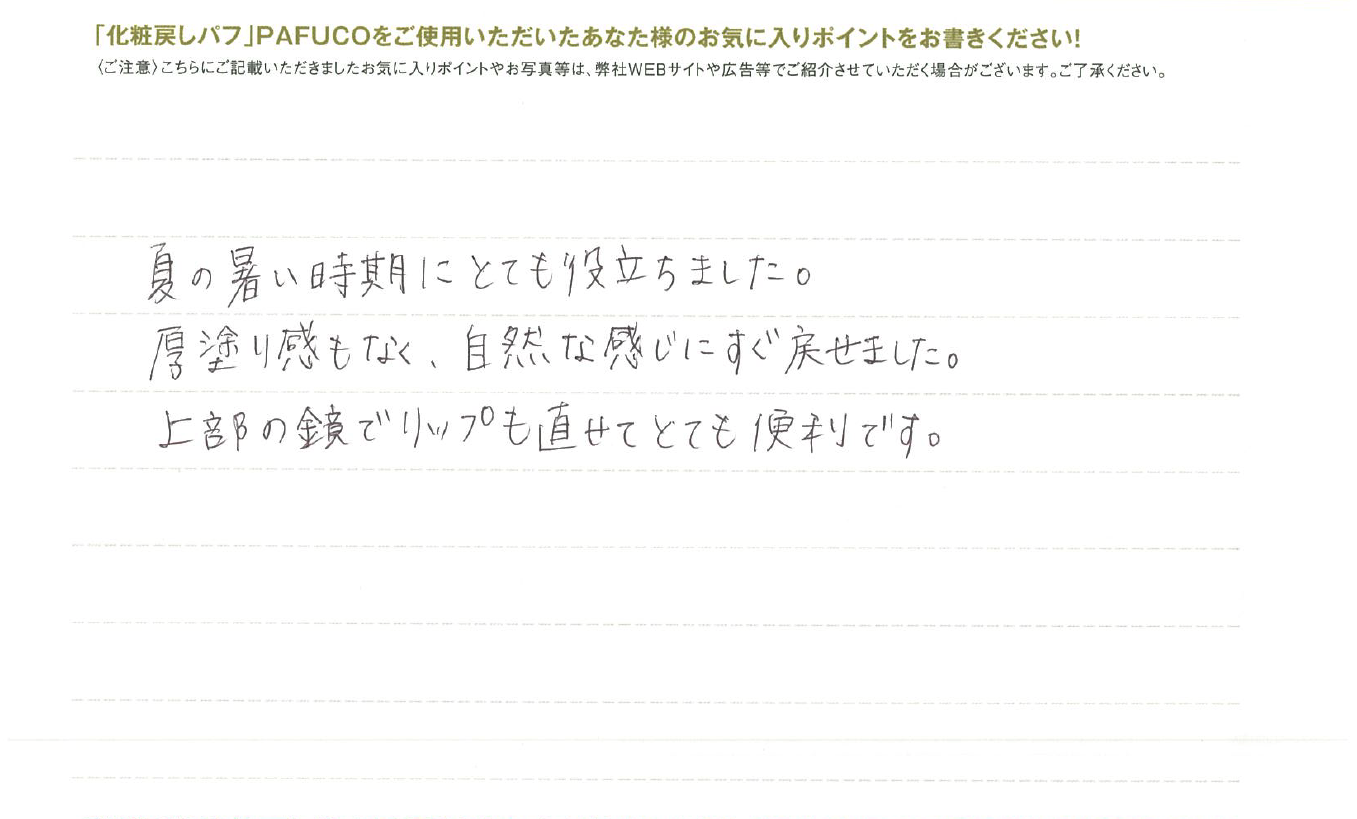 「化粧戻しパフ」PAFUCOをご使用いただいたあなた様のお気に入りポイントをお書きください!
〈ご注意〉こちらにご記載いただきましたお気に入りポイントやお写真等は、弊社WEBサイトや広告等でご紹介させていただく場合がございます。ご了承ください。
夏の暑い時期にとても役立ちました。
厚塗り感もなく、自然な感じにすぐ戻せました。
上部の鏡でリップも直せてとても便利です。